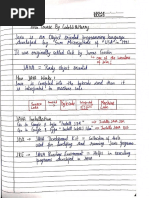 Java Course By Code With Harry
Java is an Object oriented programming language
developed by Sun Microsystems of USA in 1991
It was originally called Oak by James Gosling
one of the inventors
of java
JAVA = Purely Object Oriented
How JAVA Works ?
Java is compiled into the bytecode and then it
is interpreted to machine code.
Source Code
Compiled
Bytecode
Interpreted
Machine Code
JAVA Installation
Go to google & type "Install JDK" ⇒ Installs JDK
Go to google & type "Install IntelliJ Idea"
JDK → Java Development Kit = Collection of tools
used for developing and running
java programs
JRE → Java Runtime Environment = Helps in executing
programs developed in JAVA